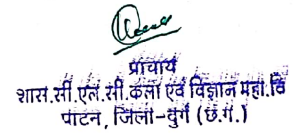 प्राचार्य
शास.सी.एल.सी.कला एवं विज्ञान महा.वि
पाटन, जिला-दुर्ग (छ.ग.)